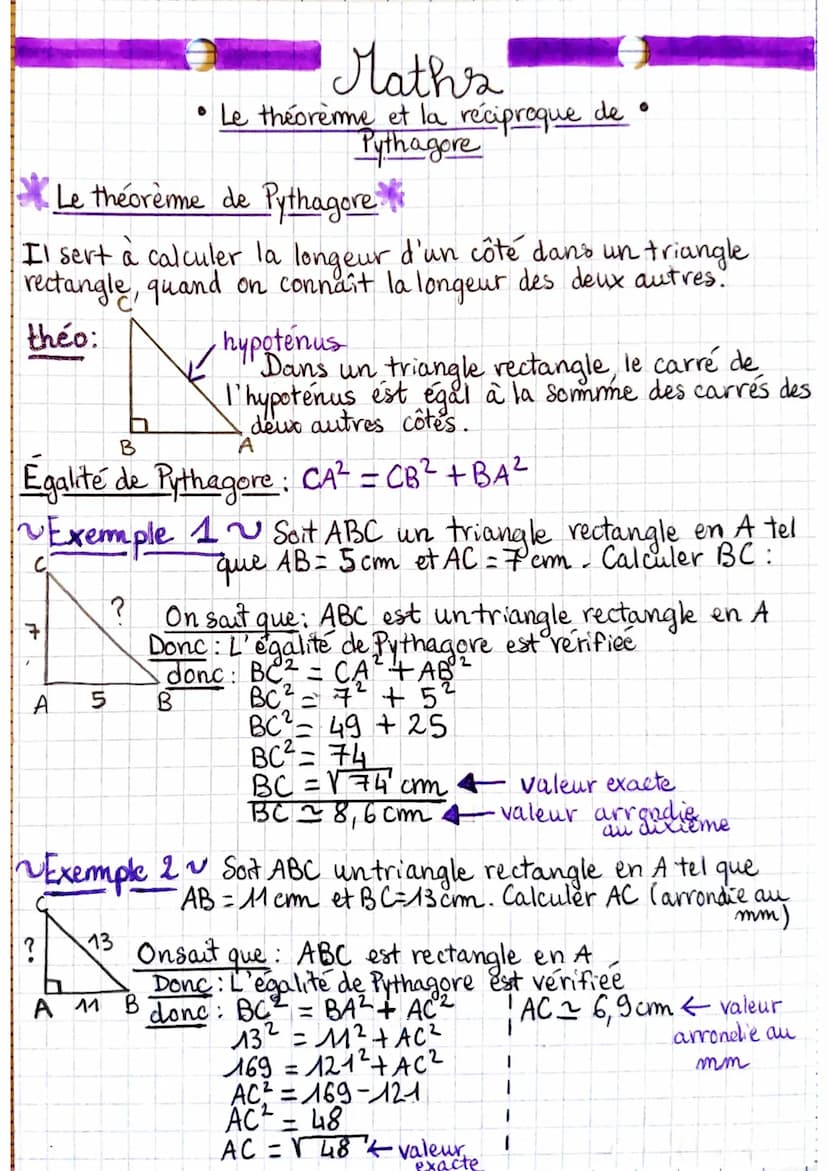 Maths
• Le théorème et la réciproque de •
Pythagore
Le théorème de Pythagore
Il sert à calculer la longeur d'un côté dans un triangle
rectangle, quand on connaît la longeur des deux autres.
C
théo:
hypoténus
Dans un triangle rectangle, le carré de
l'hypoténus est égal à la somme des carrés des
deux autres côtés.
B A
Égalité de Pythagore : CA² = CB² + BA²
~Exemple 1~ Soit ABC un triangle rectangle en A tel
que AB = 5 cm et AC = 7 cm. Calculer BC :
C
7
?
A 5 B
On sait que : ABC est un triangle rectangle en A
Donc : L'égalité de Pythagore est vérifiée
donc : BC² = CA² + AB²
BC² = 7² + 5²
BC² = 49 + 25
BC² = 74
BC = √74 cm ← valeur exacte
BC ≃ 8,6 cm ← valeur arrondie
au dixième
~Exemple 2~ Soit ABC un triangle rectangle en A tel que
AB = 11 cm et BC = 13 cm. Calculer AC (arrondie au
mm)
C
? 13
A 11 B
On sait que : ABC est rectangle en A
Donc : L'égalité de Pythagore est vérifiée
donc : BC² = BA² + AC²
13² = 11² + AC²
169 = 121² + AC²
AC² = 169 - 121
AC² = 48
AC = √48 ← valeur
exacte
AC ≃ 6,9 cm ← valeur
arrondie au
mm